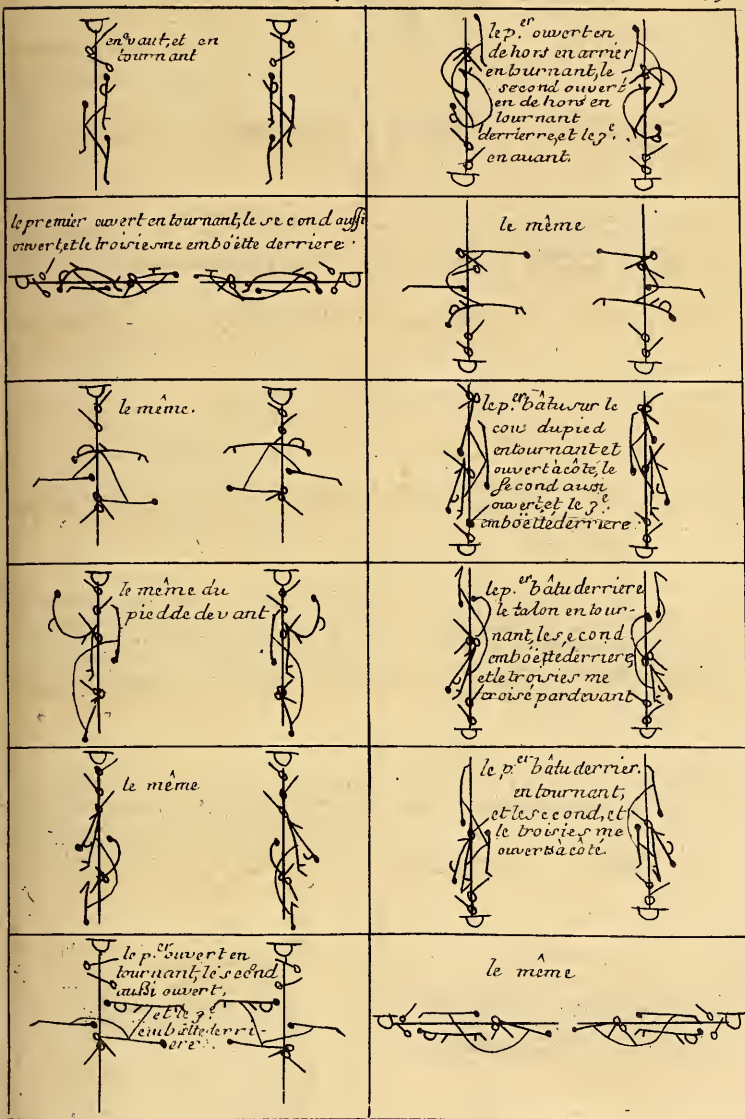 en avant, et en
tournant
le p.er ouvert en
de hors en arrier
en tournant, le
second ouvert
en de hors en
tournant
derrierre, et le 3.e
en avant.
le premier ouvert en tournant, le second aussi
ouvert, et le troisiesme emboëtte derriere.
le même
le même.
le p.er bâtu sur le
cou du pied
en tournant et
ouvert à côté, le
second aussi
ouvert, et le 3.e
emboëtté derriere
le même du
pied de devant
le p.er bâtu derriere
le talon en tour-
nant, le second
emboëtté derriere,
et le troisiesme
croisé par devant
le même
le p.er bâtu derrier.
en tournant,
et le second, et
le troisiesme
ouverts à côté.
le p.er ouvert en
tournant, le second
aussi ouvert,
et le 3.e
emboëtte derri-
ere.
le même